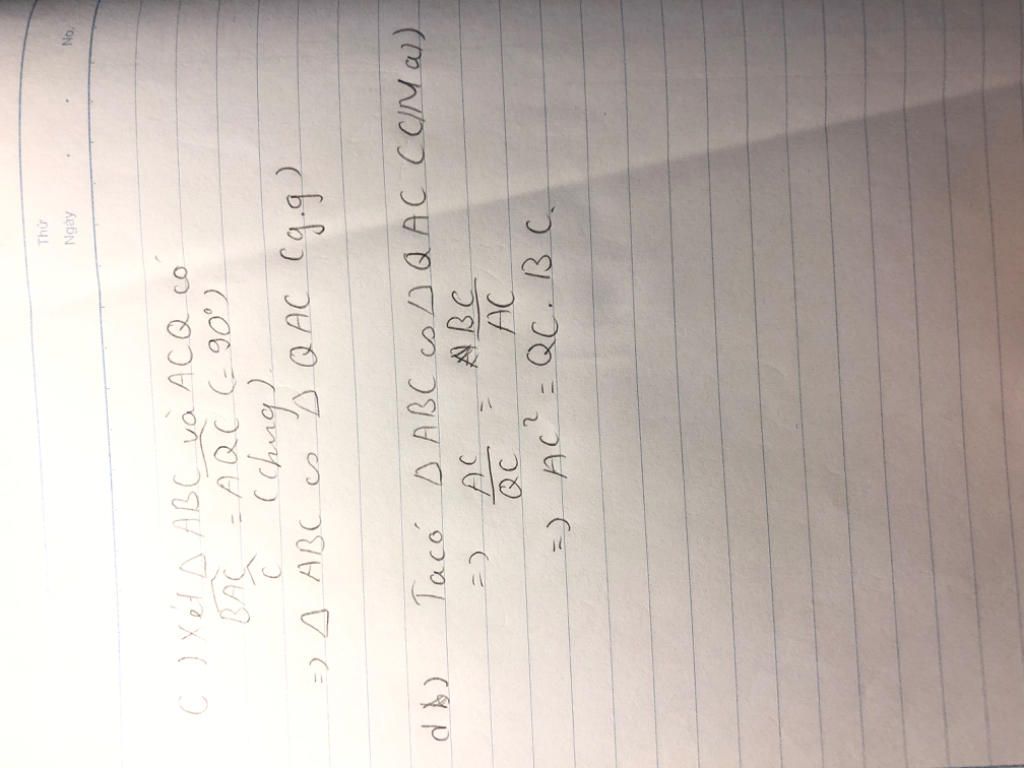 Thứ
Ngày
No.
c) Xét Δ ABC và ACQ có
BAC = AQC (= 90°)
C (chung)
=> Δ ABC ∽ Δ QAC (g.g)
d b) Ta có Δ ABC ∽ Δ QAC (C/M a)
=> AC/QC = BC/AC
=> AC² = QC. BC.